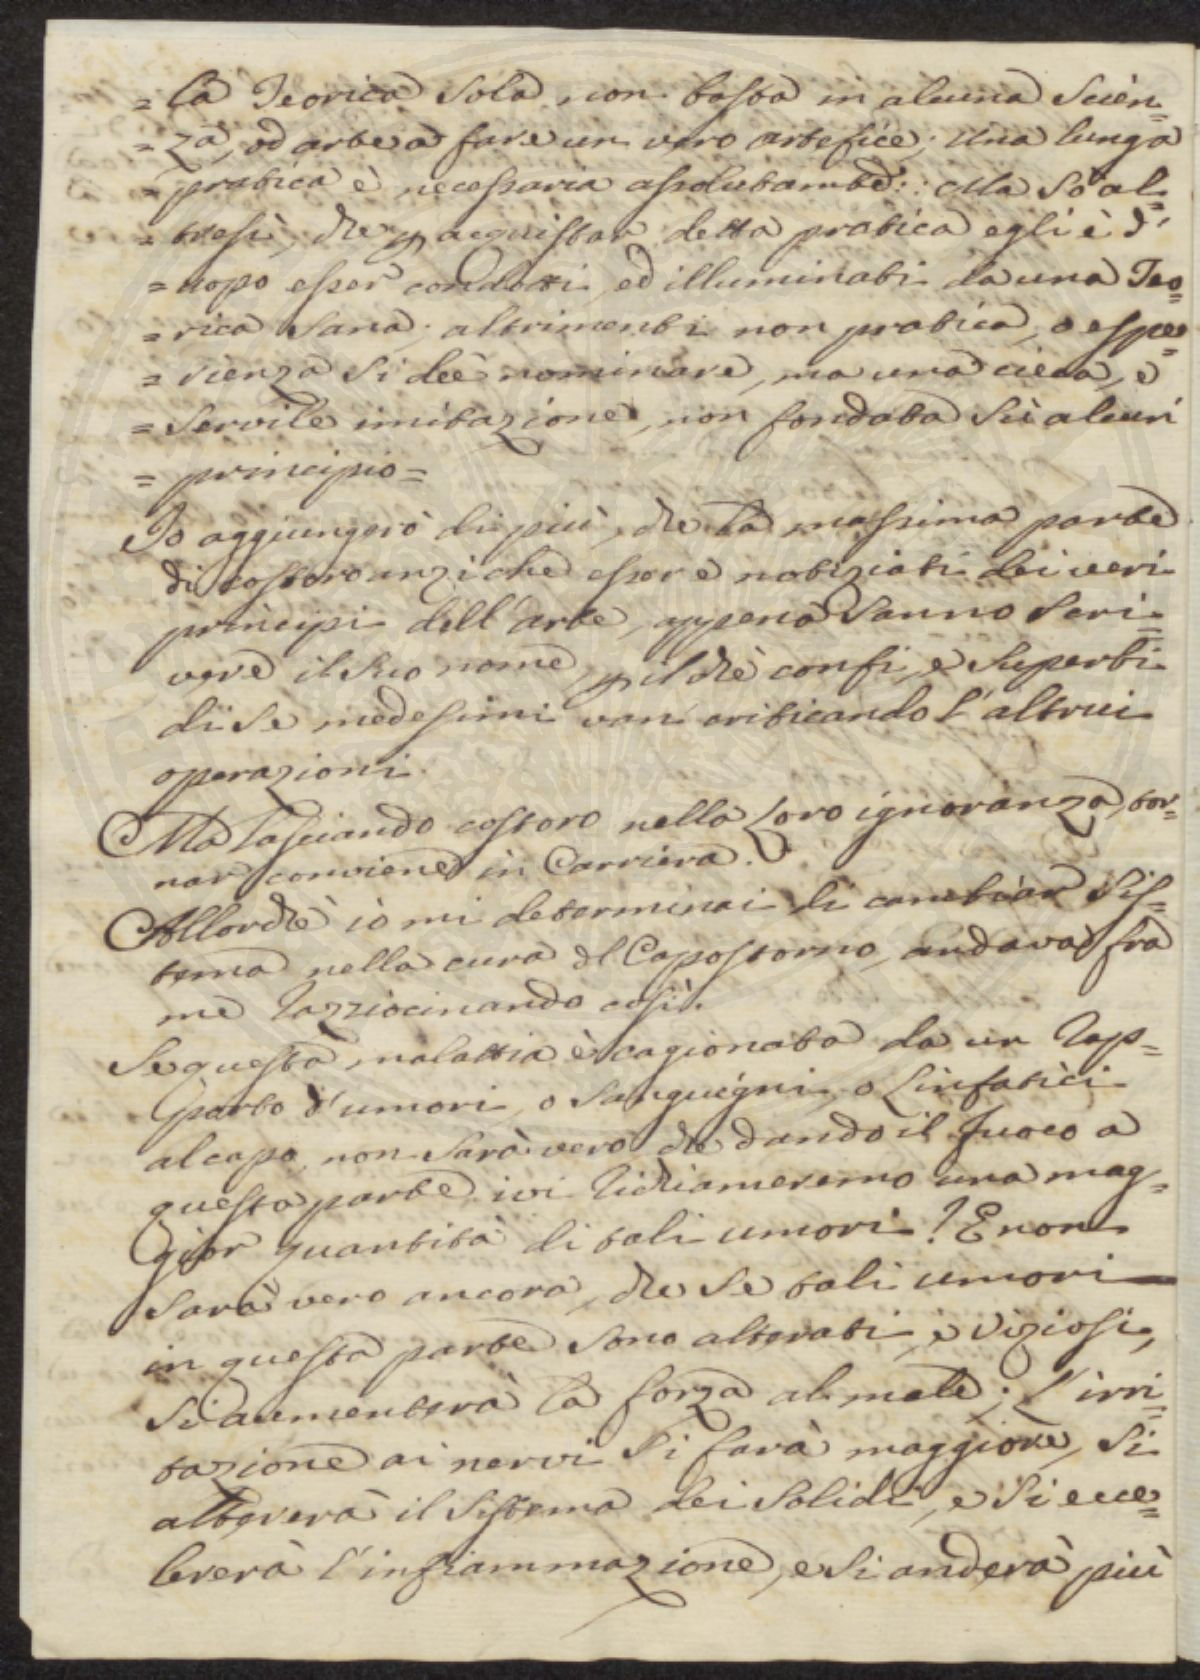 = la Teorica sola non basta in alcuna scien=
= za, od arte a fare un vero artefice; una lunga
= pratica è necessaria assolutamte: Ma so al=
= tresì, che p acquistar detta pratica egli è d'
= uopo esser condotti, ed illuminati da una Teo=
= rica sana; altrimenti non pratica, o espe=
= rienza si deè nominare, ma una cieca, e
= servile imitazione, non fondata sù alcun
= principio=
Io aggiungerò di più, che la massima parte
di costoro anziche essere notiziati dei veri
principi dell'arte, appena sanno scri=
vere il suo nome, p il chè confi, e superbi
di se medesimi van criticando l'altrui
operazioni.
Ma lasciando costoro nella loro ignoranza, tor=
nar conviene in Carriera.
Allorchè io mi determinai di cambiar sis=
tema nella cura del Capostorno, andava fra
me razziocinando così.
Se questa malattia è cagionata da un rap=
porto d'umori, o sanguigni, o linfatici
al capo, non sarà vero che dando il fuoco a
questa parte, ivi richiameremo una mag=
gior quantità di tali umori? E non
sarà vero ancora, che se tali umori
in questa parte sono alterati, e viziosi,
si aumenterà la forza al male; l'irri=
tazione ai nervi si farà maggiore, si
altererà il sistema dei solidi, e si ecce=
lererà l'infiammazione, e si anderà più